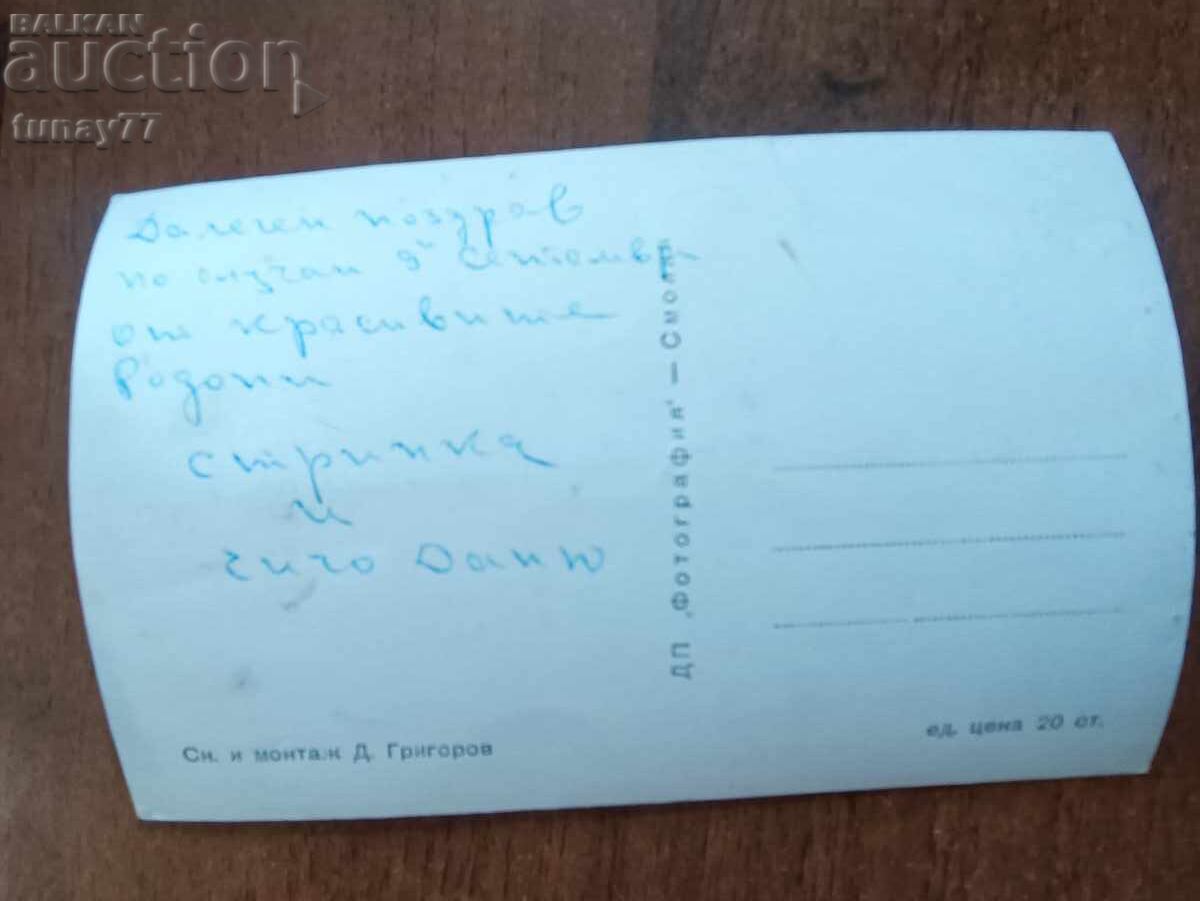 BALKAN
auction
tunay77
Далечен поздрав
по случай 9ти Септември
от красивите
Родопи
стринка
и
чичо Даню
ДП „Фотография“ — Смолян
Сн. и монтаж Д. Григоров
ед. цена 20 ст.